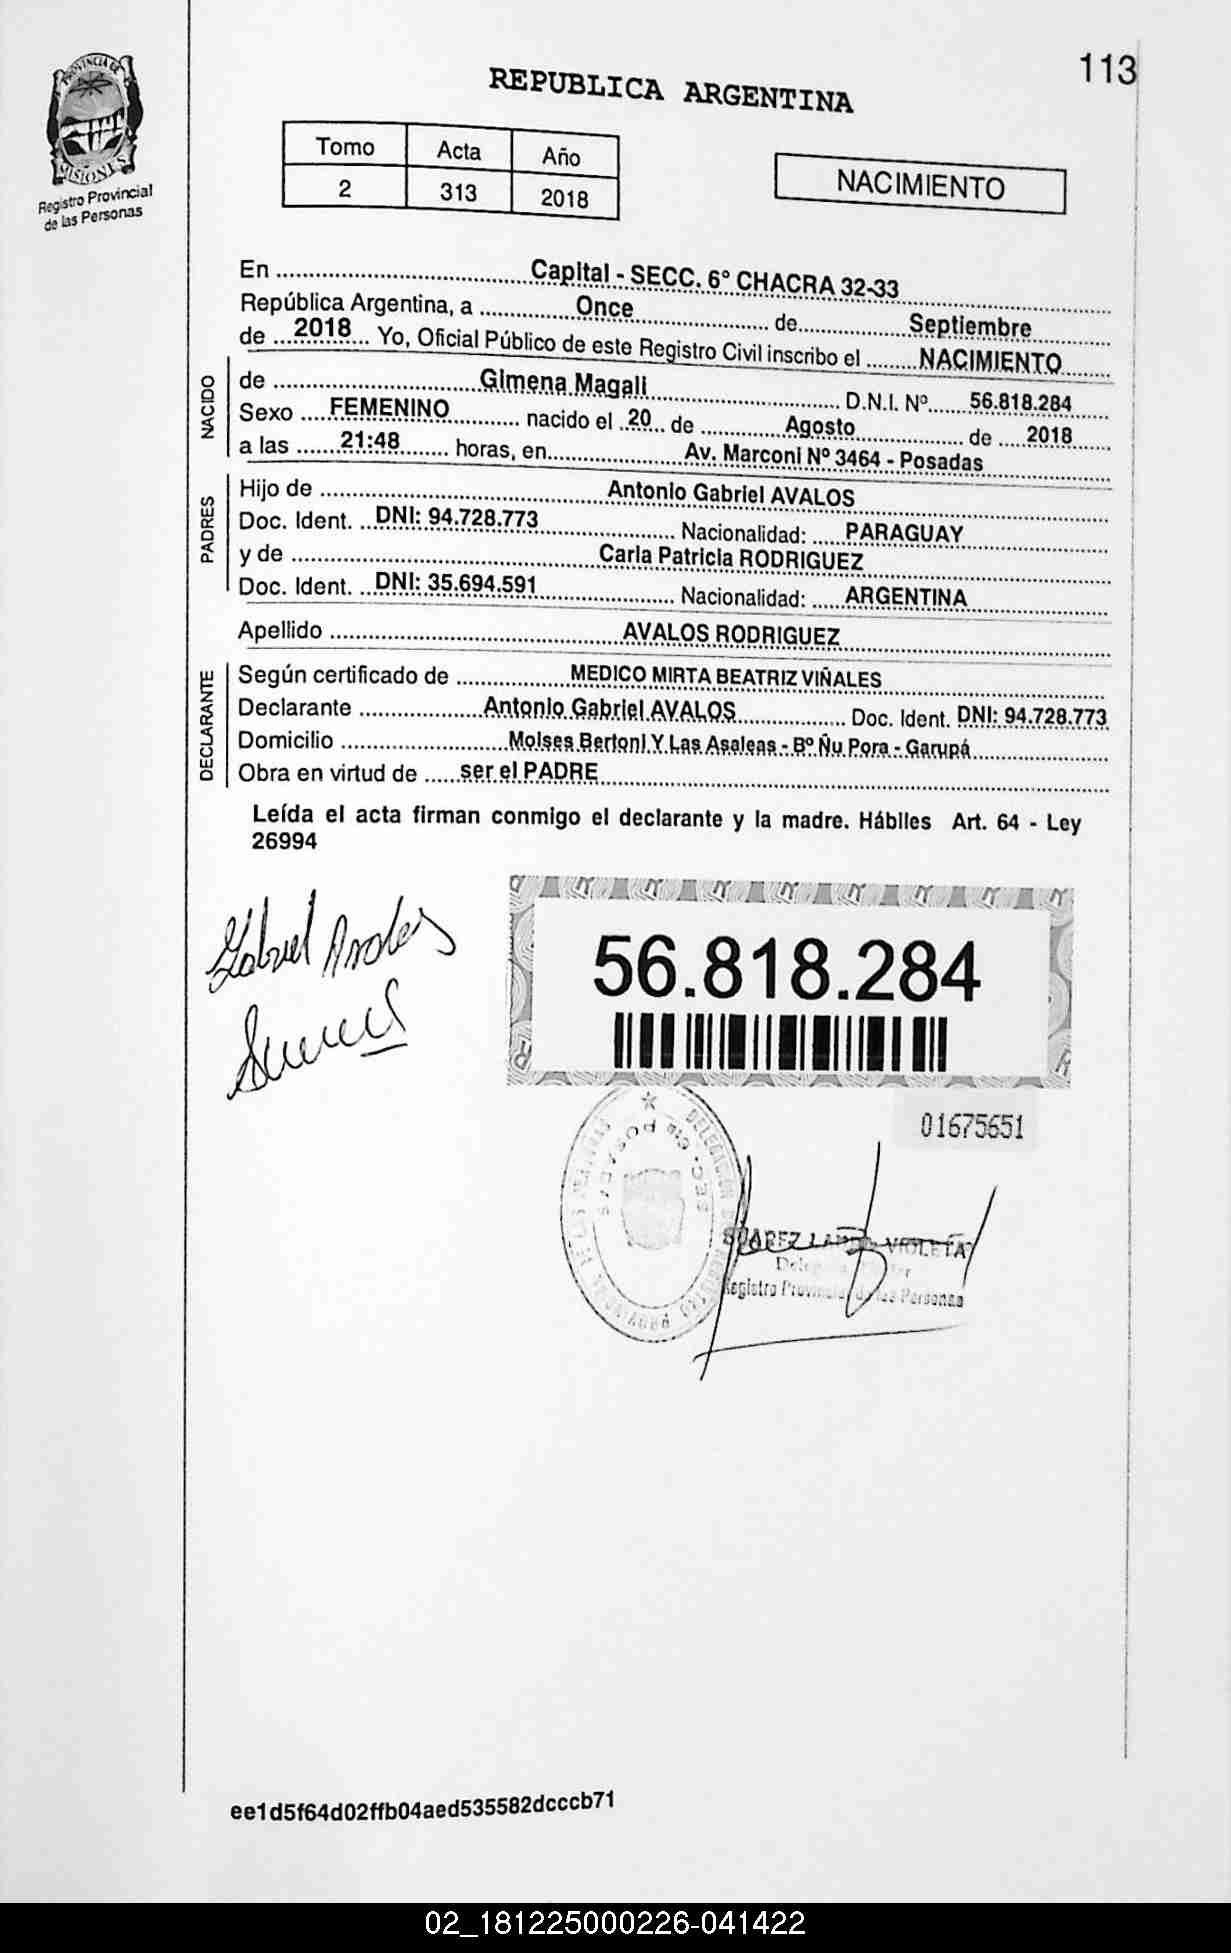 113
PROVINCIA DE
MISIONES
Registro Provincial
de las Personas
REPUBLICA ARGENTINA
Tomo Acta Año
2 313 2018
NACIMIENTO
En Capital - SECC. 6° CHACRA 32-33
República Argentina, a Once de Septiembre
de 2018 Yo, Oficial Público de este Registro Civil inscribo el NACIMIENTO
NACIDO
de Gimena Magali D.N.I. Nº 56.818.284
Sexo FEMENINO nacido el 20 de Agosto de 2018
a las 21:48 horas, en Av. Marconi Nº 3464 - Posadas
PADRES
Hijo de Antonio Gabriel AVALOS
Doc. Ident. DNI: 94.728.773 Nacionalidad: PARAGUAY
y de Carla Patricia RODRIGUEZ
Doc. Ident. DNI: 35.694.591 Nacionalidad: ARGENTINA
Apellido AVALOS RODRIGUEZ
DECLARANTE
Según certificado de MEDICO MIRTA BEATRIZ VIÑALES
Declarante Antonio Gabriel AVALOS Doc. Ident. DNI: 94.728.773
Domicilio Moises Bertoni Y Las Asaleas - Bº Ñu Pora - Garupá
Obra en virtud de ser el PADRE
Leída el acta firman conmigo el declarante y la madre. Hábiles Art. 64 - Ley
26994
Gabriel Avalos
56.818.284
01675651
SEC. 6ta POSADAS
SUAREZ VIOLETA
Registro Provincial de las Personas
ee1d5f64d02ffb04aed535582dcccb71
02_181225000226-041422